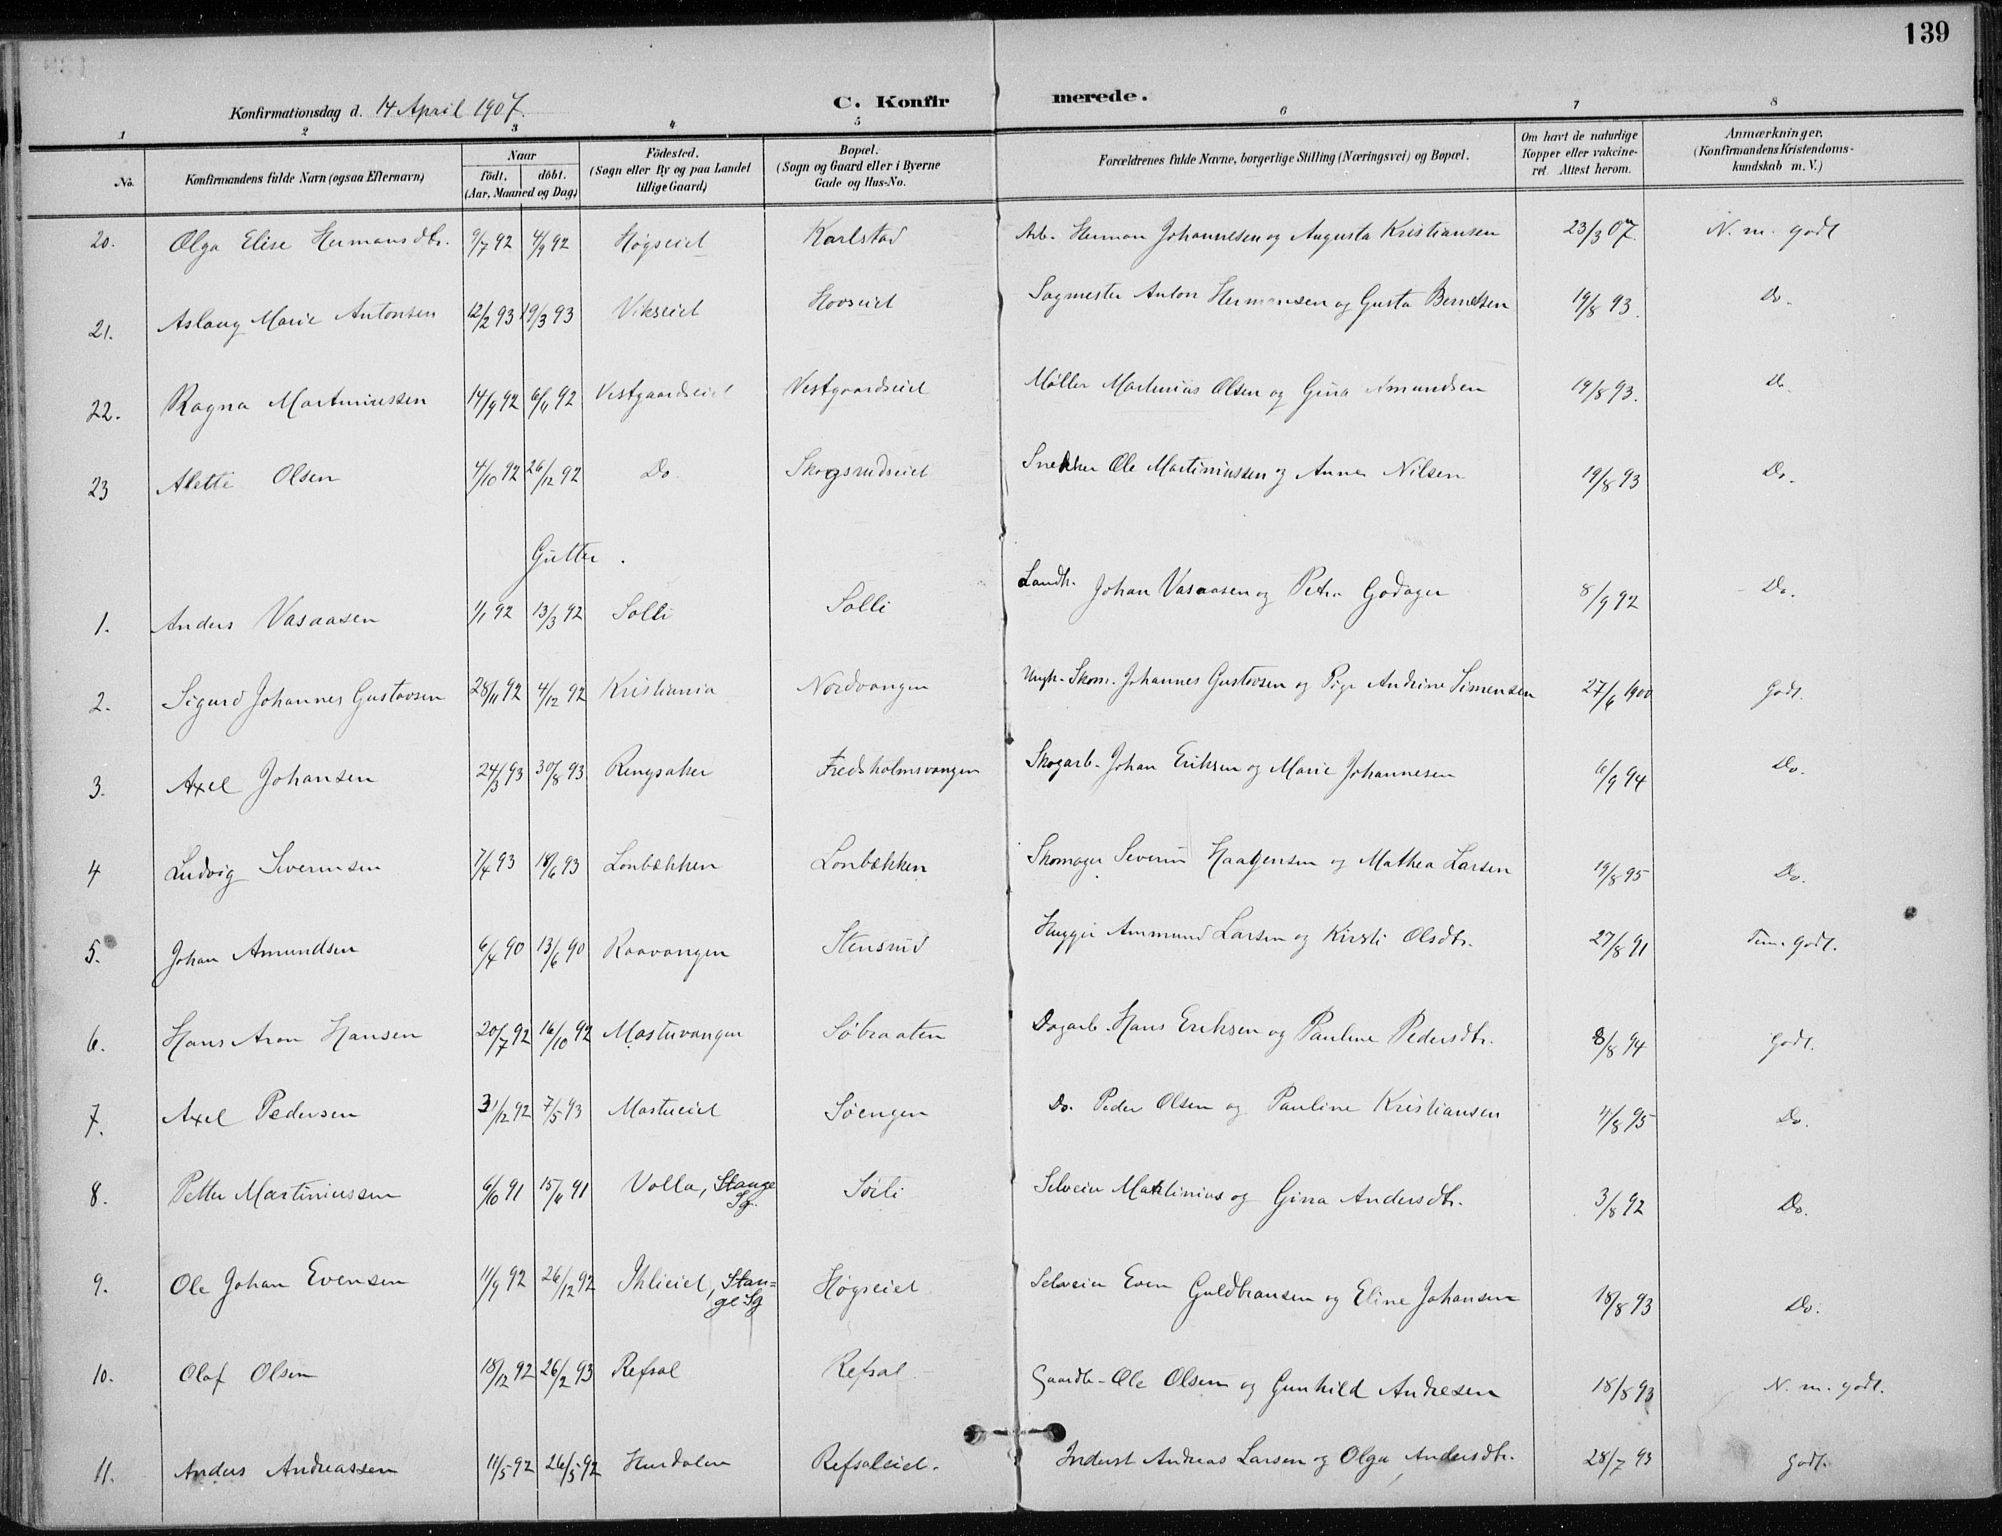 139
Konfirmationsdag d. 14 April 1907. C. Konfirmerede.
1 2 3 4 5 6 7 8
No. Konfirmandens fulde Navn (ogsaa Efternavn) Naar født. døbt. (Aar, Maaned og Dag) Fødested. (Sogn eller By og paa Landet tillige Gaard) Bopæl. (Sogn og Gaard eller i Byerne Gade og Hus-No. Forældrenes fulde Navne, borgerlige Stilling (Næringsvei) og Bopæl. Om havt de naturlige Kopper eller vakcineret. Attest herom. Anmærkninger. (Konfirmandens Kristendomskundskab m. V.)
20. Olga Elise Hermansdtr. 9/7 92 4/9 92 Høgseiet Karlstad Arb. Herman Johannesen og Augusta Kristiansen 23/3 07. N. m. godt
21. Aslaug Marie Antonsen 12/2 93 19/3 93 Vikseiet Hovseiet Sagmester Anton Hermansen og Gusta Berntsen 19/8 93. Do.
22. Ragna Martiniussen 14/9 92 6/11 92 Vestgaardseiet Vestgaardseiet Møller Martinius Olsen og Gina Amundsen 19/8 93. Do.
23 Alette Olsen 4/10 92 26/12 92 Do. Skogsrudseiet Snekker Ole Martiniussen og Anne Nilsen 19/8 93 Do.
Gutter.
1. Anders Vasaasen 1/1 92 13/3 92 Solli Solli Landh. Johan Vasaasen og Petra Godager 8/9 92 Do.
2. Sigurd Johannes Gustavsen 28/11 92 4/12 92 Kristiania Nordvangen Ungk. Skom. Johannes Gustavsen og Pige Andrine Simensen 27/6 1900 Godt.
3. Axel Johansen 24/3 93 30/8 93 Ringsaker Fredsholmsvangen Skogarb. Johan Eriksen og Marie Johannesen 6/9 94 Do.
4 Ludvig Severinsen 7/4 93 18/6 93 Lonbækken Lonbekken Skomager Severin Haagensen og Mathea Larsen 19/8 95 Do.
5. Johan Amundsen 6/4 90 13/6 90 Raavangen Stensrud Hugger Ammund Larsen og Kirsti Olsdtr. 27/8 91 Tem. godt.
6. Hans Aron Hansen 20/7 92 16/10 92 Mostuvangen Søbraaten Dagarb. Hans Eriksen og Pauline Pedersdtr. 8/8 94 Godt.
7. Axel Pedersen 31/12 92 7/5 93 Mostueiet Søengen Do. Peder Olsen og Pauline Kristiansen 4/8 95 Do.
8. Petter Martiniussen 6/10 91 15/11 91 Volla, Stange Sg. Søili Selveier Martinius og Gina Andersdtr. 3/8 92 Do.
9. Ole Johan Evensen 11/9 92 26/12 92 Ihlieiet, Stange Sg Høgseiet Selveier Even Guldbransen og Eline Johansen 18/8 93 Do.
10. Olaf Olsen 18/12 92 26/2 93 Refsal Refsal Gaardb. Ole Olsen og Gunhild Andresen 18/8 93 N. m. godt.
11. Anders Andreassen 11/5 92 26/5 92 Hurdalen Refsaleiet. Inderst Andreas Larsen og Olga Andersdtr. 28/7 93 Godt.